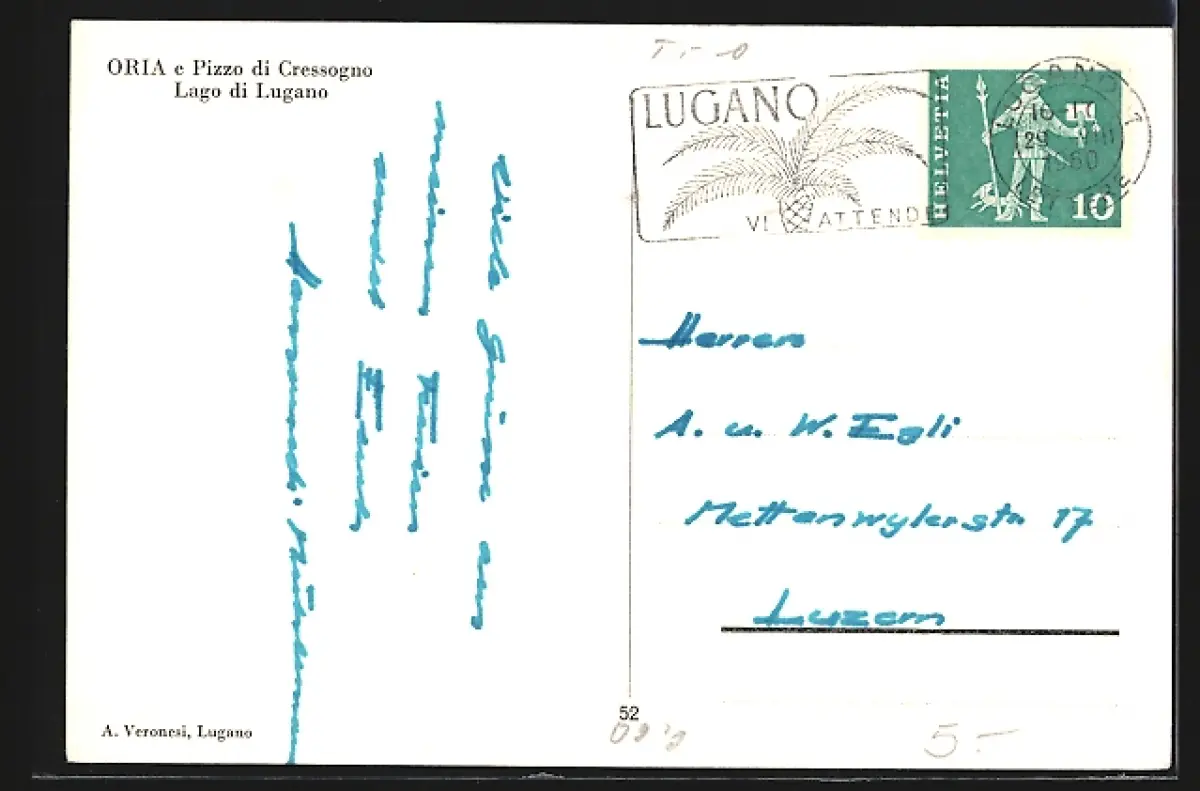 ORIA e Pizzo di Cressogno
Lago di Lugano
Viele Grüsse aus
meinen Ferien
LUGANO
VI ATTENDE
HELVETIA
10
29. VIII
1960
Herren
A. u. W. Egli
Mettenwylerstr 17
Luzern
A. Veronesi, Lugano
52
5.-